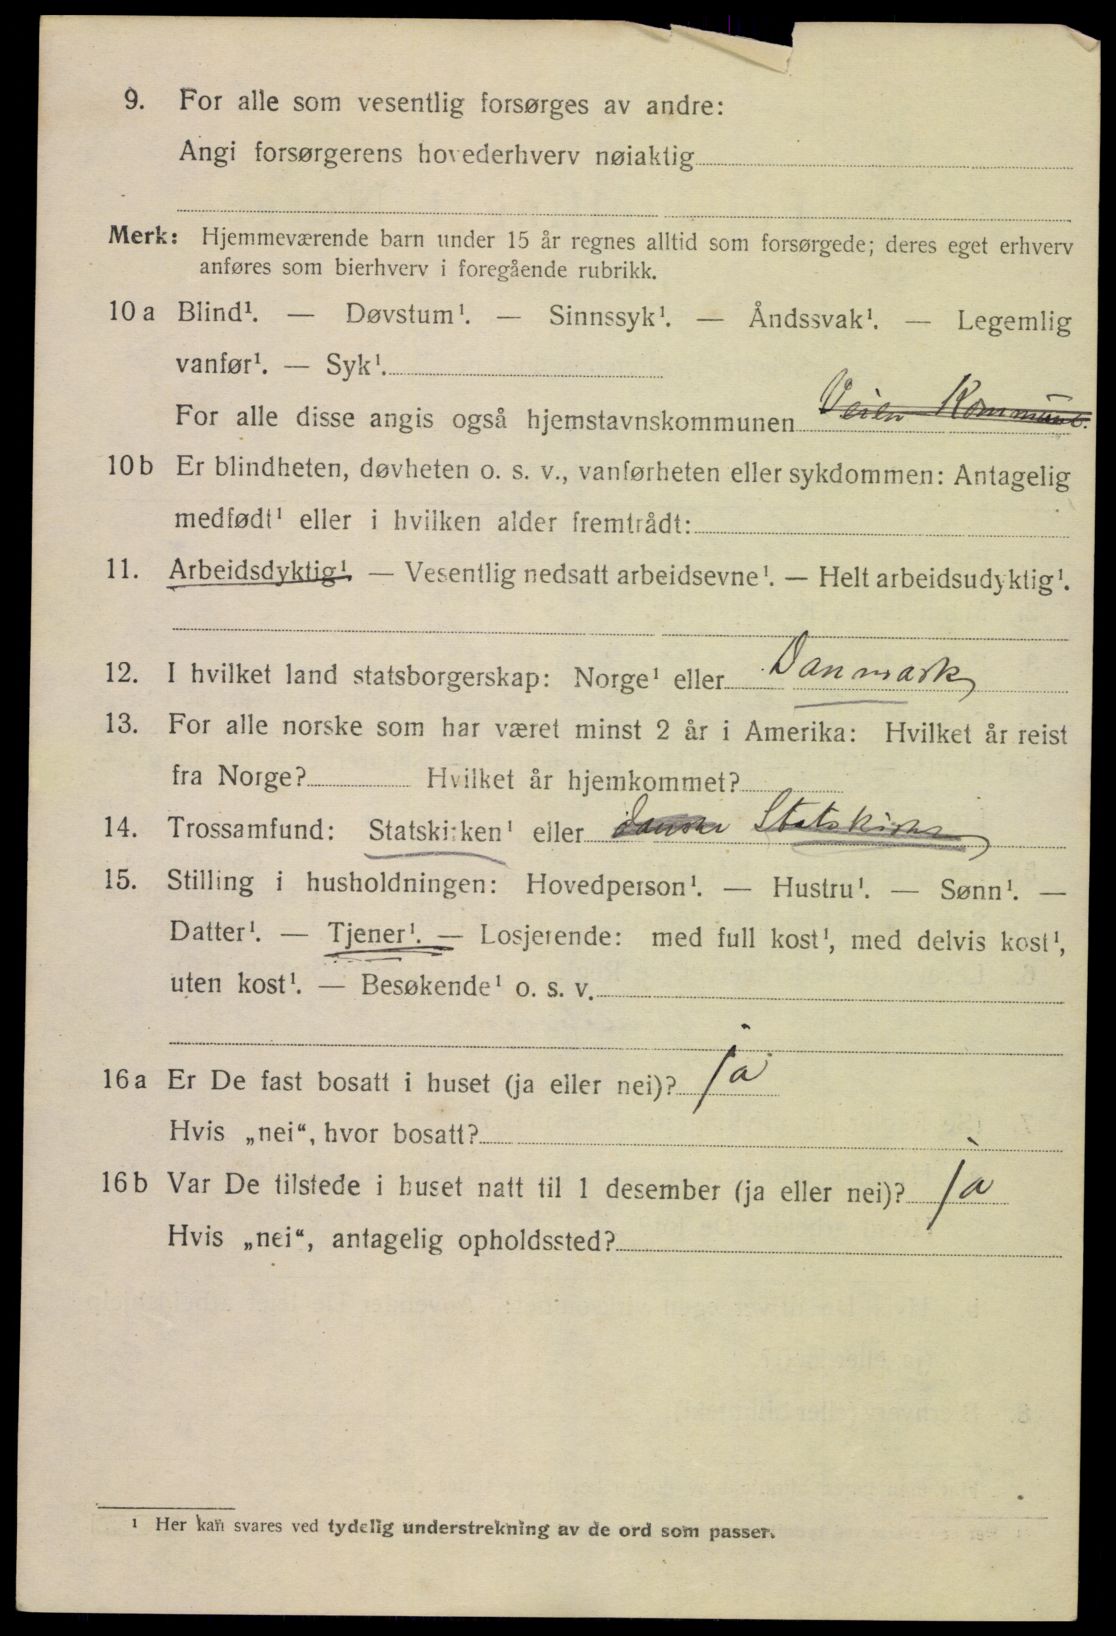 9. For alle som vesentlig forsørges av andre:
Angi forsørgerens hovederhverv nøiaktig
Merk: Hjemmeværende barn under 15 år regnes alltid som forsørgede; deres eget erhverv
anføres som bierhverv i foregående rubrikk.
10 a Blind¹. — Døvstum¹. — Sinnssyk¹. — Åndssvak¹. — Legemlig
vanfør¹. — Syk¹.
For alle disse angis også hjemstavnskommunen Kommune.
10 b Er blindheten, døvheten o. s. v., vanførheten eller sykdommen: Antagelig
medfødt¹ eller i hvilken alder fremtrådt:
11. Arbeidsdyktig¹. — Vesentlig nedsatt arbeidsevne¹. — Helt arbeidsudyktig¹.
12. I hvilket land statsborgerskap: Norge¹ eller Danmark
13. For alle norske som har været minst 2 år i Amerika: Hvilket år reist
fra Norge? Hvilket år hjemkommet?
14. Trossamfund: Statskirken¹ eller Danske Statskirke
15. Stilling i husholdningen: Hovedperson¹. — Hustru¹. — Sønn¹. —
Datter¹. — Tjener¹. — Losjerende: med full kost¹, med delvis kost¹,
uten kost¹. — Besøkende¹ o. s. v.
16 a Er De fast bosatt i huset (ja eller nei)? ja
Hvis „nei“, hvor bosatt?
16 b Var De tilstede i huset natt til 1 desember (ja eller nei)? ja
Hvis „nei“, antagelig opholdssted?
¹ Her kan svares ved tydelig understrekning av de ord som passer.